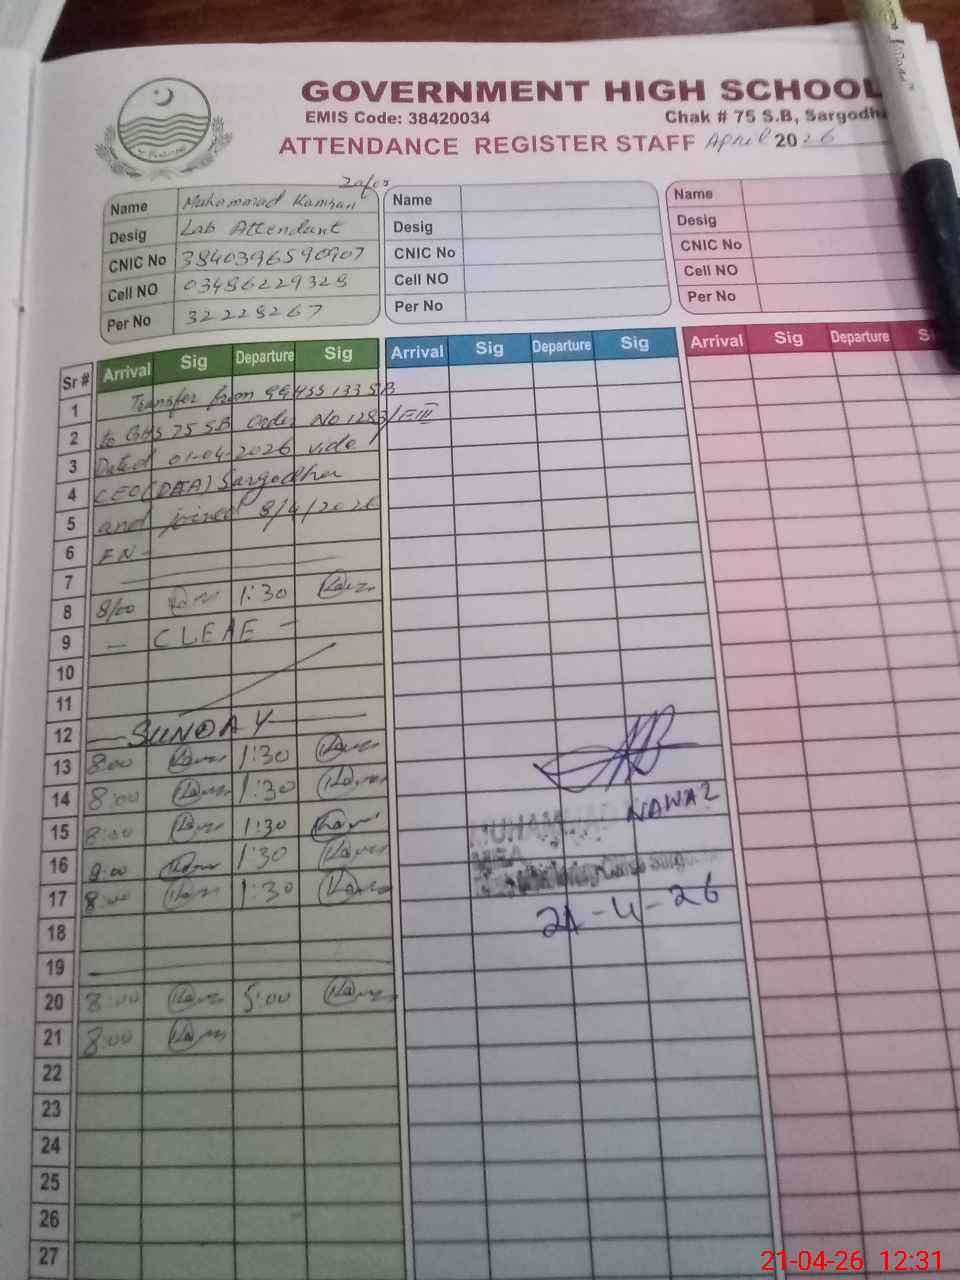 GOVERNMENT HIGH SCHOOL
EMIS Code: 38420034
Chak # 75 S.B, Sargodha
ATTENDANCE REGISTER STAFF April 2026
Zafer
Name Muhammad Kamran
Desig Lab Attendant
CNIC No 3840396590907
Cell NO 03486229328
Per No 32228267
Name
Desig
CNIC No
Cell NO
Per No
Name
Desig
CNIC No
Cell NO
Per No
Sr # Arrival Sig Departure Sig Arrival Sig Departure Sig Arrival Sig Departure
1 Transfer from 133 SB
2 to GHS 75 SB Order No 1283/EIII
3 Dated 01-04-2026 vide
4 CEO (DEA) Sargodha
5 and joined 8/4/2026
6 FN-
7
8 8/00 1:30
9 - CLEAE -
10
11
12 SUNDAY
13 8:00 1:30
14 8:00 1:30
15 8:00 1:30
16 8:00 1:30
17 8:00 1:30
18
19
20 8:00 5:00
21 8:00
22
23
24
25
26
27
MUHAMMAD NAWAZ
MEA
21-4-26
21-04-26 12:31